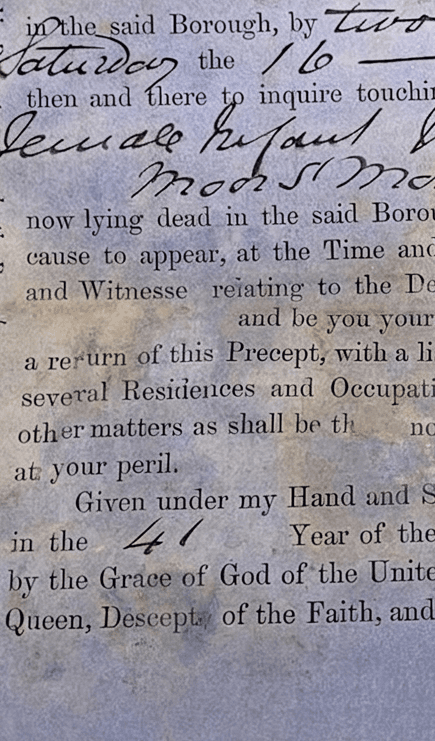 in the said Borough, by two
Saturday the 16
then and there to inquire touchin
Female Infant
Moor St Mo
now lying dead in the said Borou
cause to appear, at the Time and
and Witnesse relating to the De
and be you your
a return of this Precept, with a li
several Residences and Occupati
other matters as shall be th no
at your peril.
Given under my Hand and S
in the 41 Year of the
by the Grace of God of the Unite
Queen, Descept of the Faith, and